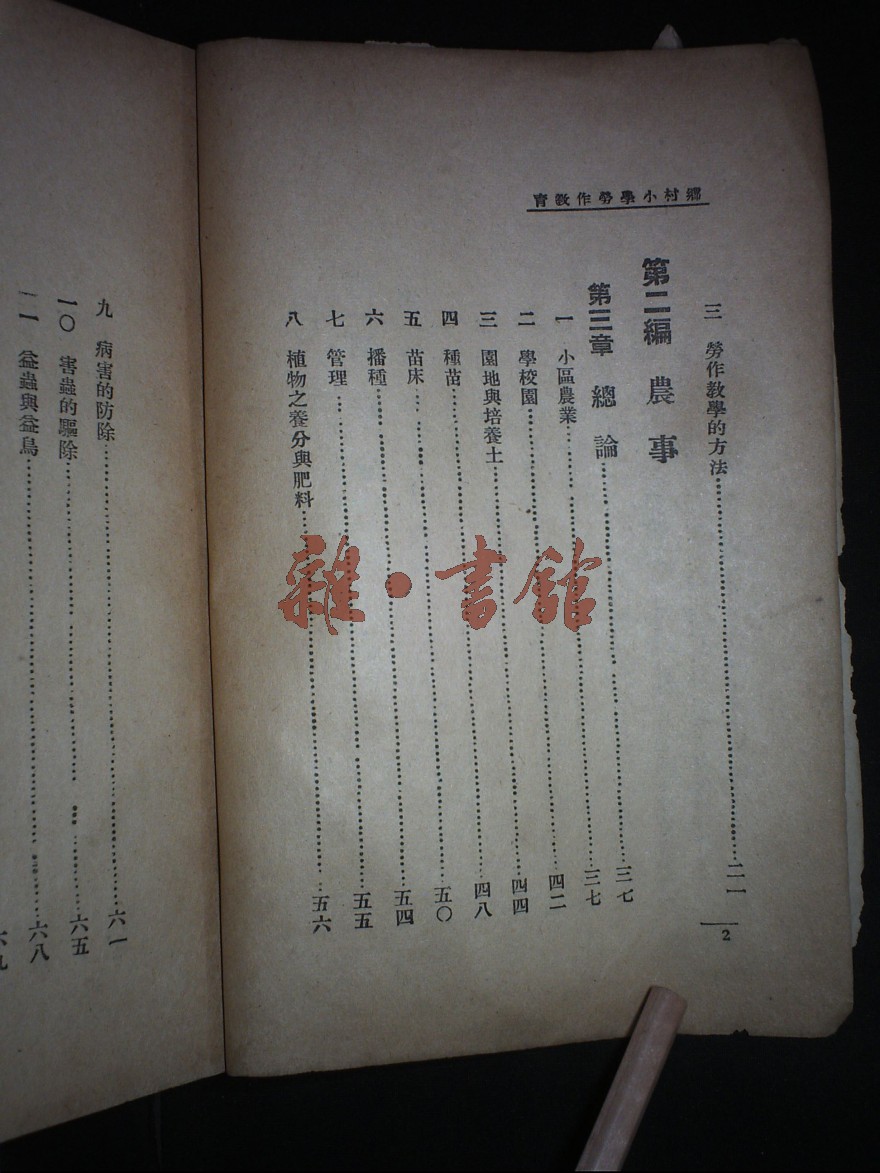 鄉村小學勞作教育
三 勞作教學的方法……二一
第二編 農事
第三章 總論……三七
一 小區農業……三七
二 學校園……四二
三 園地與培養土……四四
四 種苗……四八
五 苗床……五〇
六 播種……五四
七 管理……五五
八 植物之養分與肥料……五六
2
九 病害的防除……六一
一〇 害蟲的驅除……六五
一一 益蟲與益鳥……六八
雜·書館